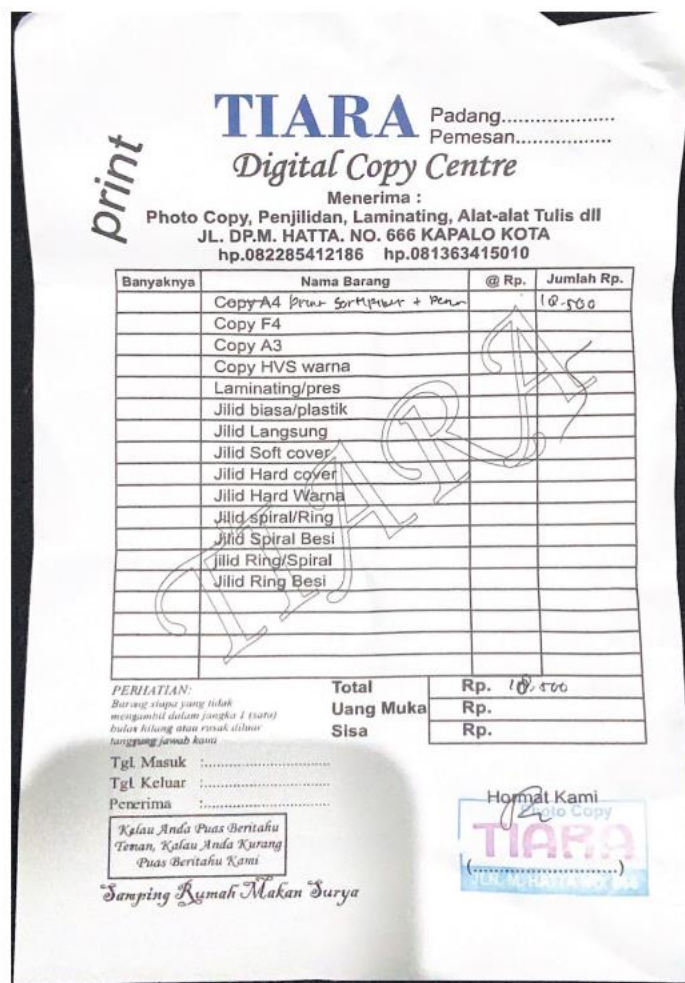 print
TIARA
Padang....................
Pemesan.................
Digital Copy Centre
Menerima :
Photo Copy, Penjilidan, Laminating, Alat-alat Tulis dll
JL. DP.M. HATTA. NO. 666 KAPALO KOTA
hp.082285412186 hp.081363415010
Banyaknya Nama Barang @ Rp. Jumlah Rp.
Copy A4 print +
Copy F4
Copy A3
Copy HVS warna
Laminating/pres
Jilid biasa/plastik
Jilid Langsung
Jilid Soft cover
Jilid Hard cover
Jilid Hard Warna
Jilid spiral/Ring
Jilid Spiral Besi
jilid Ring/Spiral
Jilid Ring Besi
TIARA
PERHATIAN:
Barang siapa yang tidak
mengambil dalam jangka 1 (satu)
bulan hilang atau rusak diluar
tanggung jawab kami
Total Rp.
Uang Muka Rp.
Sisa Rp.
Tgl. Masuk :..............................
Tgl. Keluar :..............................
Penerima :..............................
Kalau Anda Puas Beritahu
Teman, Kalau Anda Kurang
Puas Beritahu Kami
Samping Rumah Makan Surya
Hormat Kami
Photo Copy
TIARA
(........................)